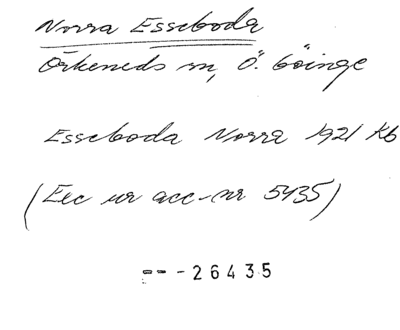 Norra Esseboda
Örkeneds sn, Ö. Göinge
Esseboda Norra 1921 Kb
(Exc ur acc-nr 5435)
--- 26435